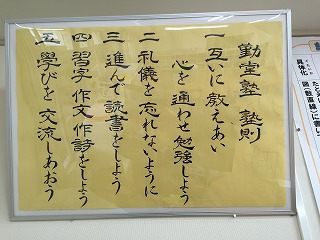 勤堂塾 塾則
一 互いに教えあい
心を通わせ勉強しよう
二 礼儀を忘れないように
三 進んで読書をしよう
四 習字 作文 作詩をしよう
五 學びを交流しあおう
具体化